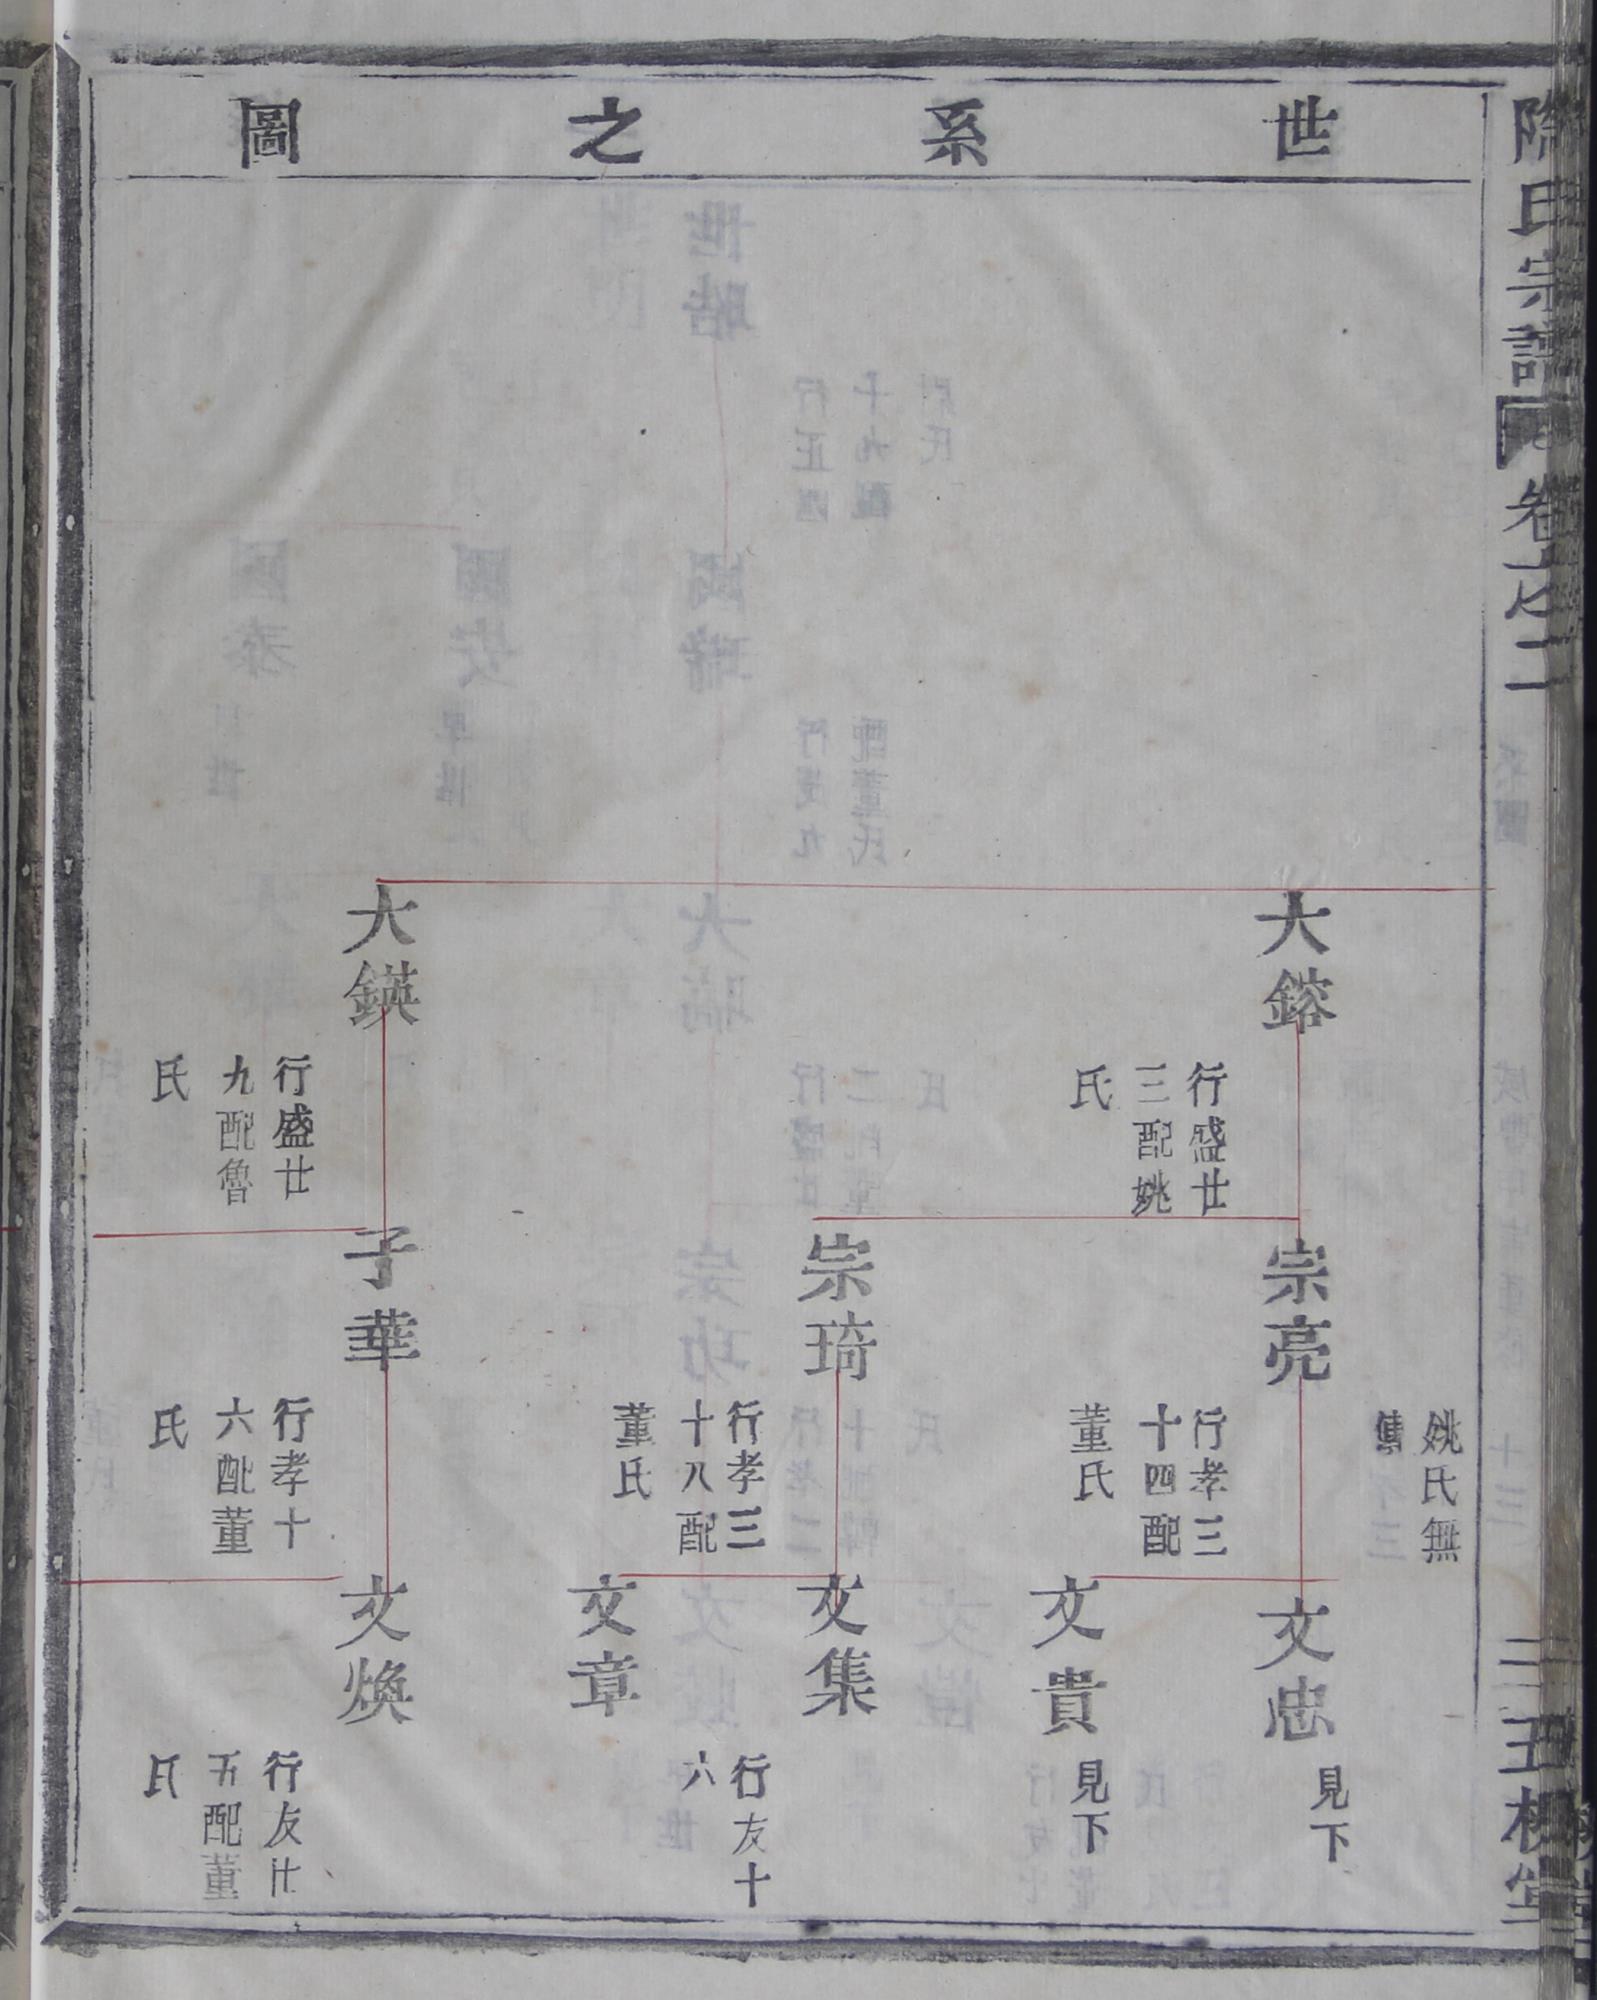 世系之圖
氏宗譜
卷之二
三
五桂堂
大鎔
行盛廿
三配姚
氏
大鍈
行盛廿
九配魯
氏
姚氏無
傳
宗亮
行孝三
十四配
董氏
宗琦
行孝三
十八配
董氏
子華
行孝十
六配董
氏
文忠
見下
文貴
見下
文集
行友十
六
文章
文煥
行友廿
五配董
氏